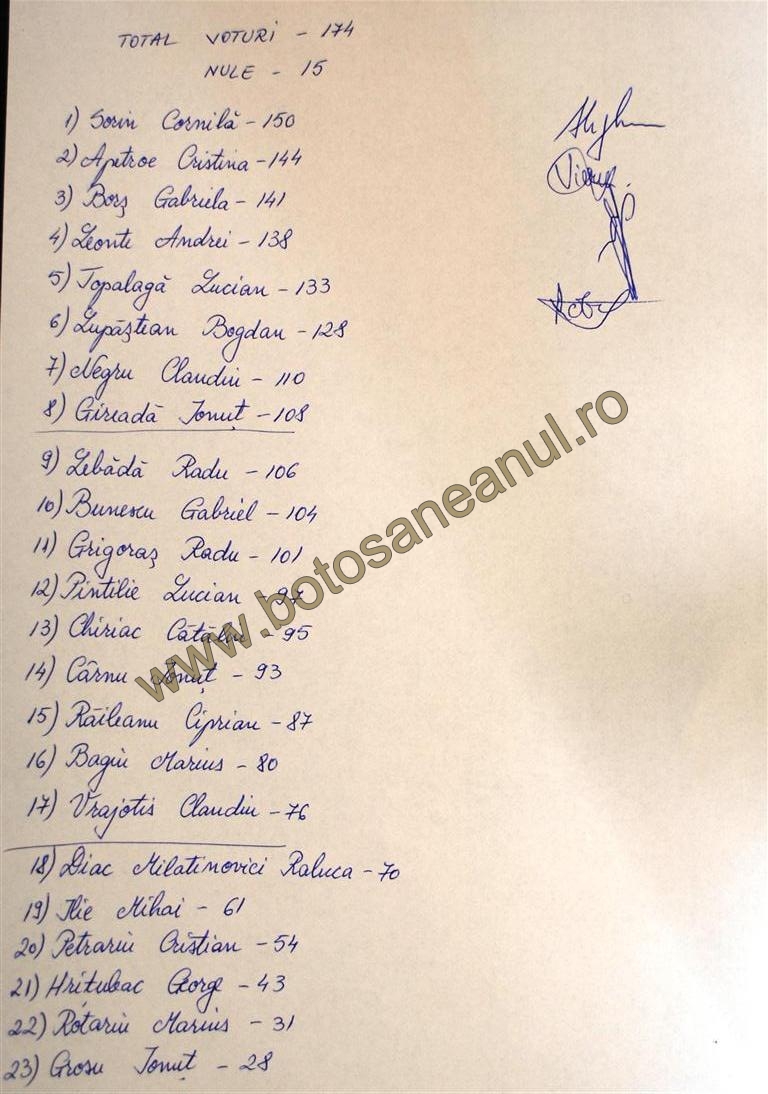 TOTAL VOTURI - 174
NULE - 15
1) Sorin Cornilă - 150
2) Apetroe Cristina - 144
3) Borș Gabriela - 141
4) Leonte Andrei - 138
5) Topalagă Lucian - 133
6) Lupăștean Bogdan - 128
7) Negru Claudiu - 110
8) Gireadă Ionuț - 108
9) Lebădă Radu - 106
10) Bunescu Gabriel - 104
11) Grigoraș Radu - 101
12) Pintilie Lucian - 97
13) Chiriac Cătălin - 95
14) Cârnu Ionuț - 93
15) Răileanu Ciprian - 87
16) Bagiu Marius - 80
17) Vrajotis Claudiu - 76
18) Diac Milatinovici Raluca - 70
19) Ilie Mihai - 61
20) Petrariu Cristian - 54
21) Hrițuleac George - 43
22) Rotariu Marius - 31
23) Grosu Ionuț - 28
www.botosaneanul.ro